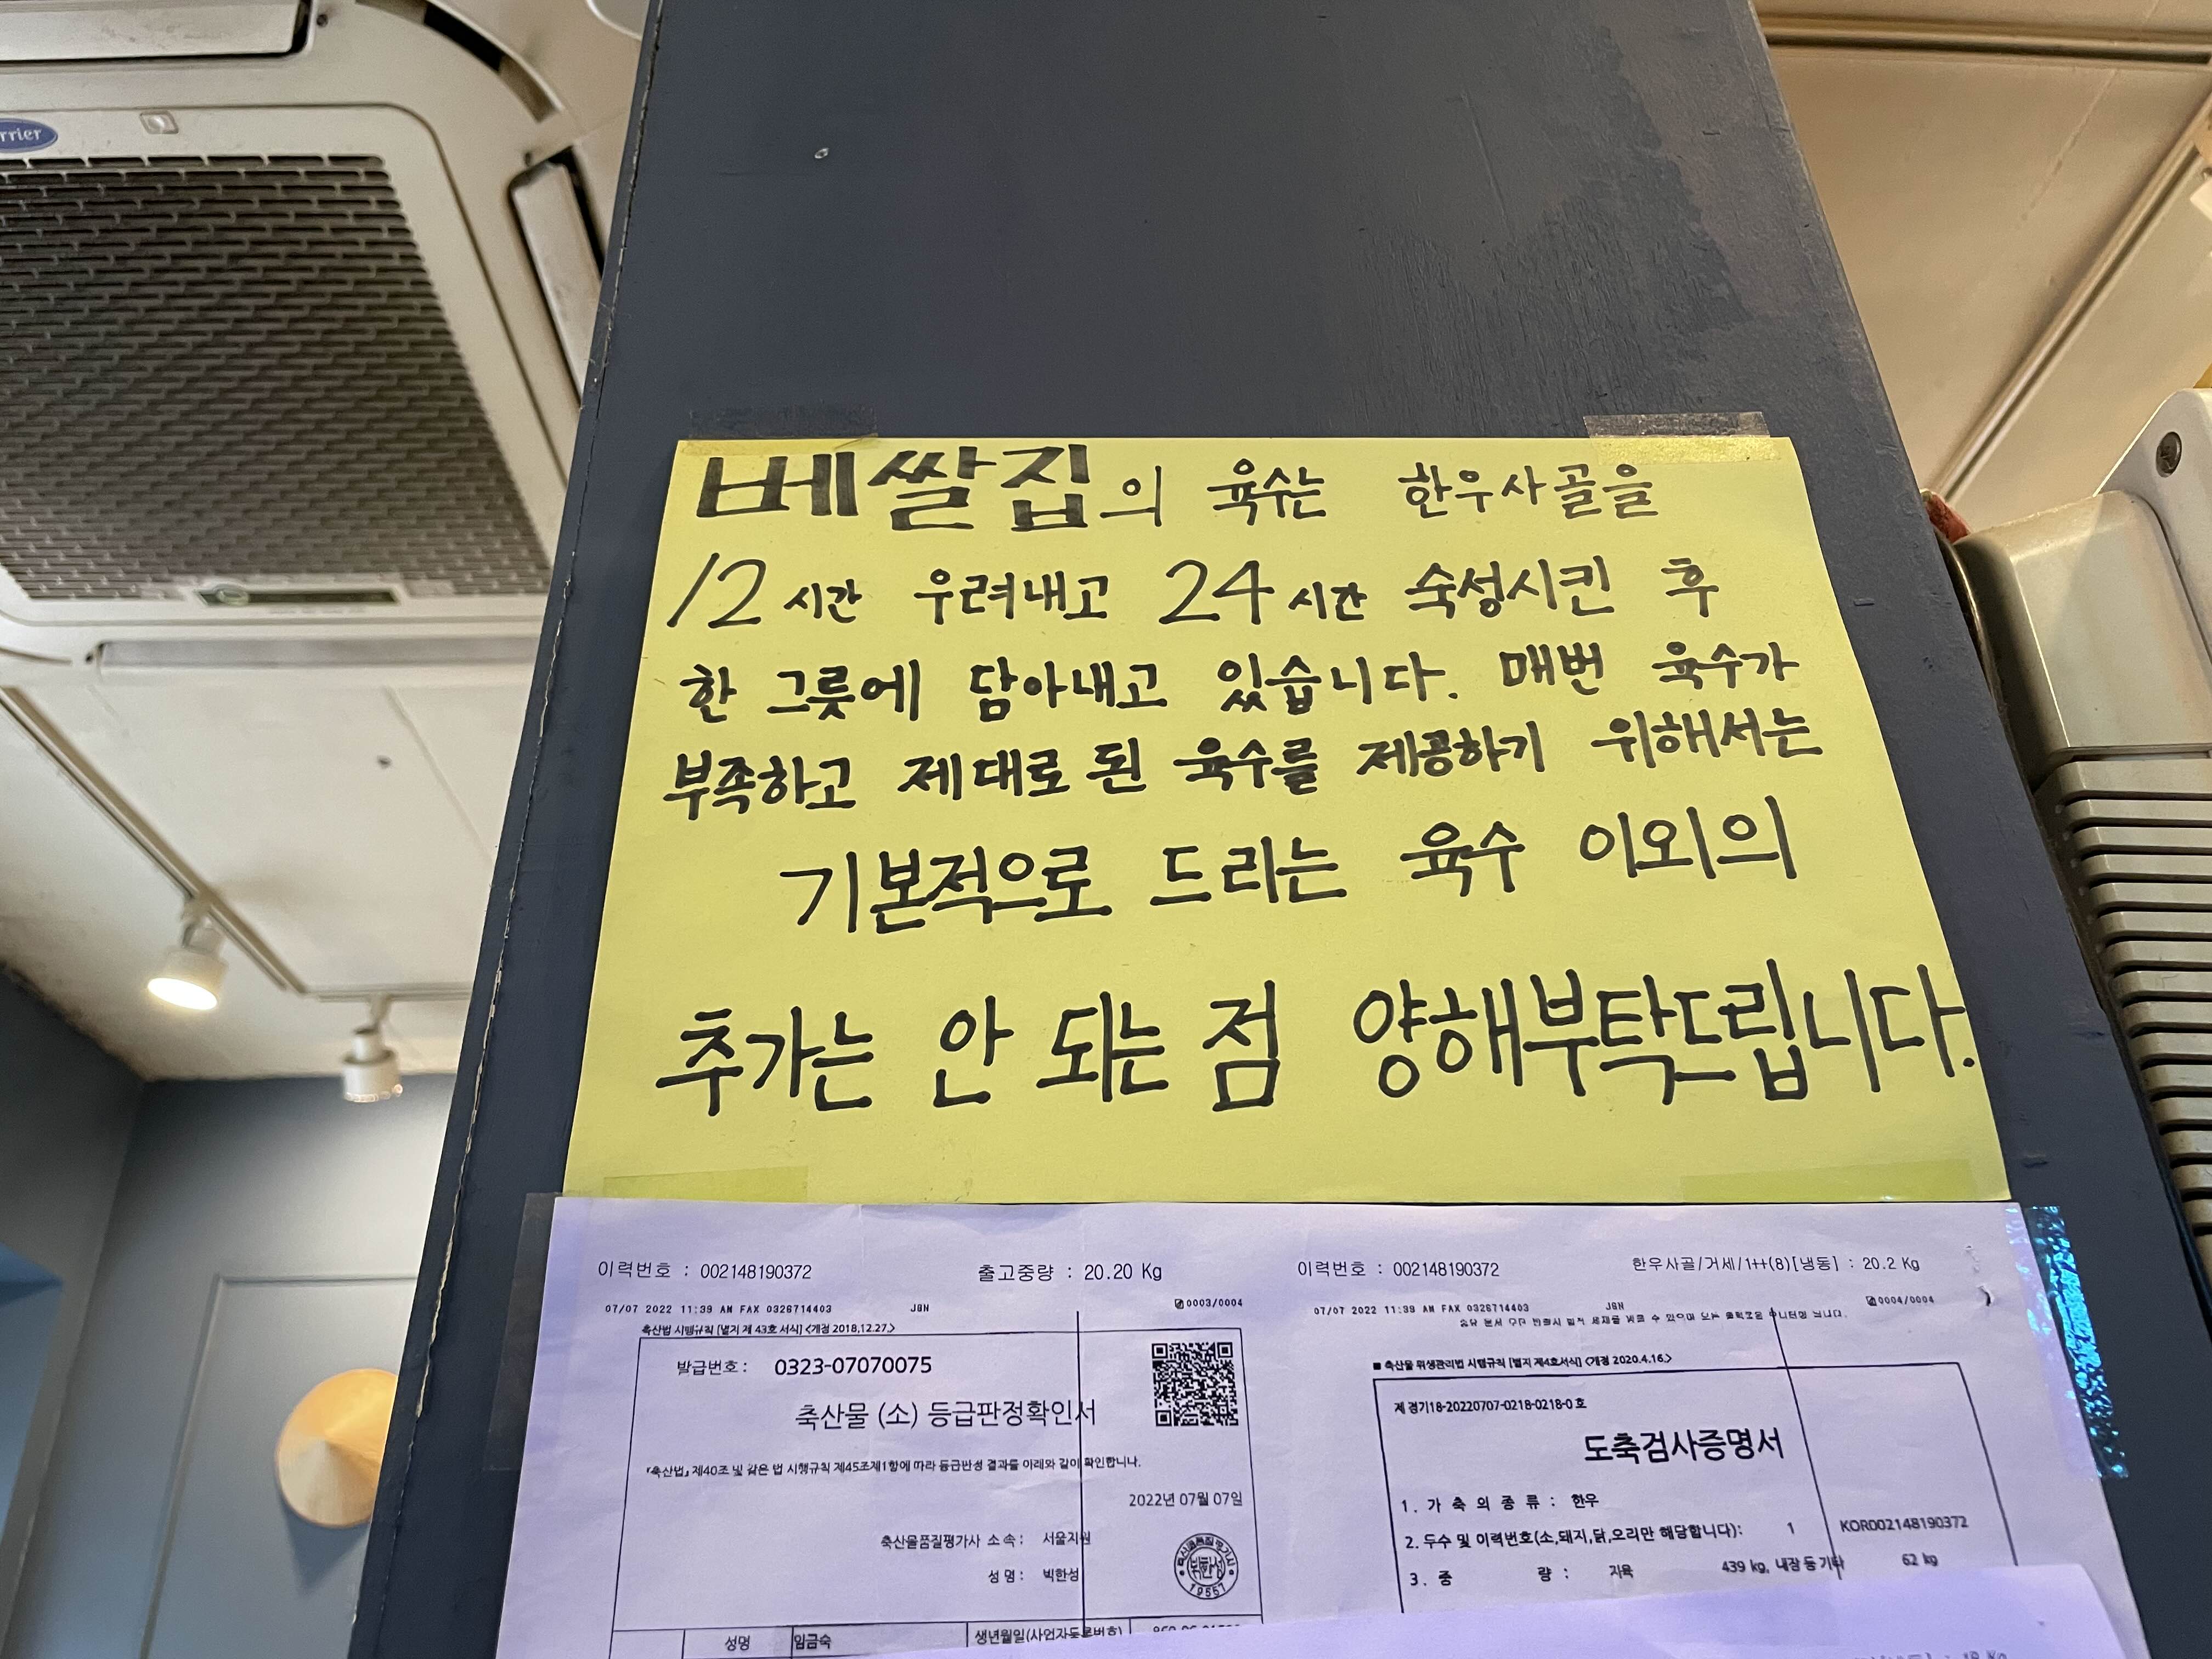 rrier
베쌀집의 육수는 한우사골을
12시간 우려내고 24시간 숙성시킨 후
한 그릇에 담아내고 있습니다. 매번 육수가
부족하고 제대로 된 육수를 제공하기 위해서는
기본적으로 드리는 육수 이외의
추가는 안 되는 점 양해부탁드립니다.
이력번호 : 002148190372 출고중량 : 20.20 Kg
07/07 2022 11:39 AM FAX 0326714403 JBN 0003/0004
축산법 시행규칙 [별지 제 43호 서식] <개정 2018.12.27.>
발급번호: 0323-07070075
축산물 (소) 등급판정확인서
「축산법」 제40조 및 같은 법 시행규칙 제45조제1항에 따라 등급판정 결과를 아래와 같이 확인합니다.
2022년 07월 07일
축산물품질평가사 소 속 : 서울지원
성 명 : 박한성
성명 임금숙 생년월일(사업자등록번호)
이력번호 : 002148190372 한우사골/거세/1++(8)[냉동] : 20.2 Kg
07/07 2022 11:39 AM FAX 0326714403 JBN 0004/0004
■ 축산물 위생관리법 시행규칙 [별지 제4호서식] <개정 2020.4.16.>
제 경기18-20220707-0218-0218-0 호
도축검사증명서
1. 가 축 의 종 류 : 한우
2. 두수 및 이력번호(소,돼지,닭,오리만 해당합니다): 1 KOR002148190372
3. 중 량 : 지육 439 kg, 내장 등 기타 62 kg